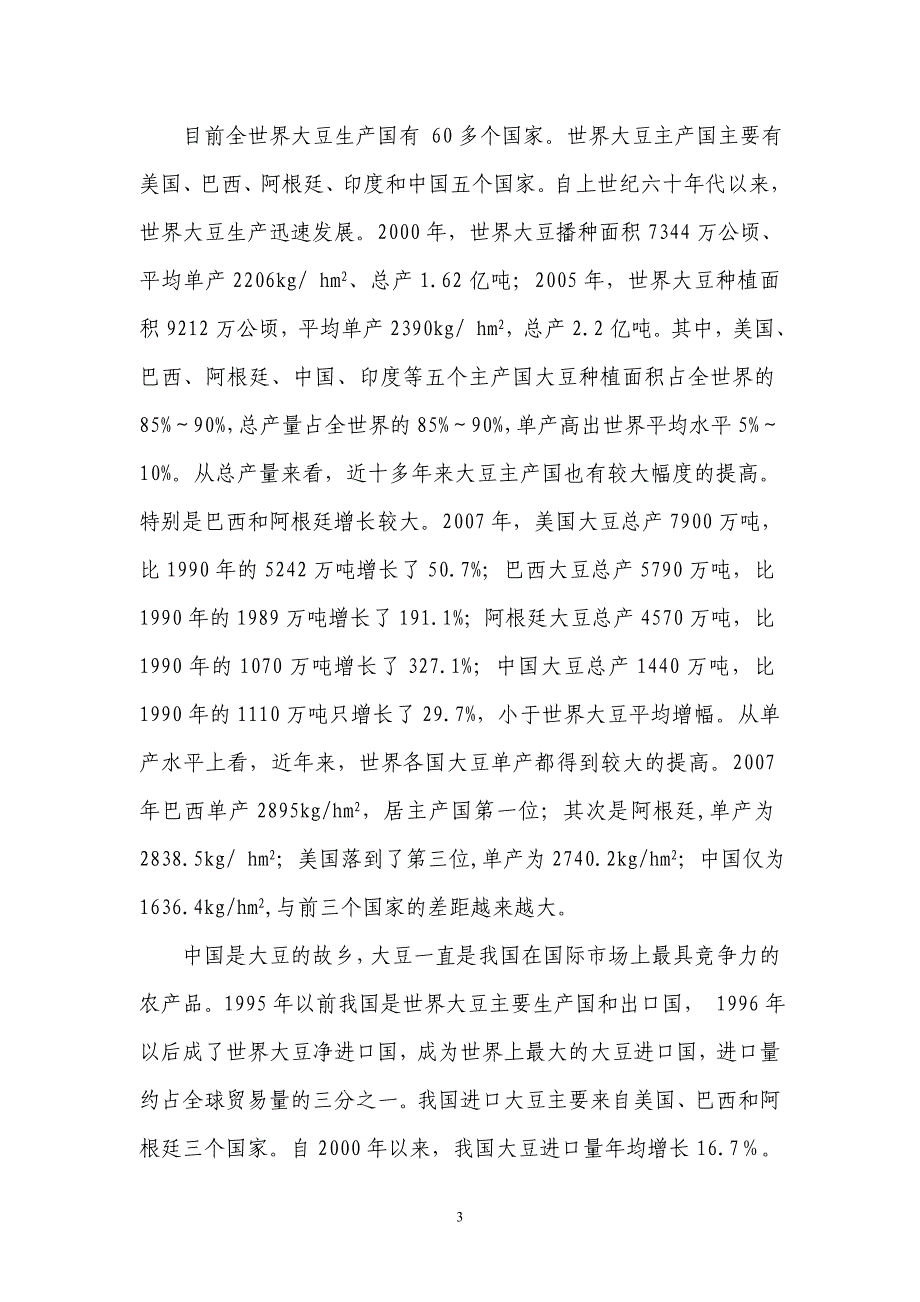 目前全世界大豆生产国有 60多个国家。世界大豆主产国主要有
美国、巴西、阿根廷、印度和中国五个国家。自上世纪六十年代以来，
世界大豆生产迅速发展。2000年，世界大豆播种面积7344万公顷、
平均单产2206kg/ hm²、总产1.62亿吨；2005年，世界大豆种植面
积9212万公顷，平均单产2390kg/ hm²，总产2.2亿吨。其中，美国、
巴西、阿根廷、中国、印度等五个主产国大豆种植面积占全世界的
85%～90%,总产量占全世界的85%～90%,单产高出世界平均水平5%～
10%。从总产量来看，近十多年来大豆主产国也有较大幅度的提高。
特别是巴西和阿根廷增长较大。2007年，美国大豆总产7900万吨，
比1990年的5242万吨增长了50.7%；巴西大豆总产5790万吨，比
1990年的1989万吨增长了191.1%；阿根廷大豆总产4570万吨，比
1990年的1070万吨增长了327.1%；中国大豆总产1440万吨，比
1990年的1110万吨只增长了29.7%，小于世界大豆平均增幅。从单
产水平上看，近年来，世界各国大豆单产都得到较大的提高。2007
年巴西单产2895kg/hm²，居主产国第一位；其次是阿根廷,单产为
2838.5kg/ hm²；美国落到了第三位,单产为2740.2kg/hm²；中国仅为
1636.4kg/hm²,与前三个国家的差距越来越大。
中国是大豆的故乡,大豆一直是我国在国际市场上最具竞争力的
农产品。1995年以前我国是世界大豆主要生产国和出口国， 1996年
以后成了世界大豆净进口国，成为世界上最大的大豆进口国，进口量
约占全球贸易量的三分之一。我国进口大豆主要来自美国、巴西和阿
根廷三个国家。自2000年以来，我国大豆进口量年均增长16.7％。
3